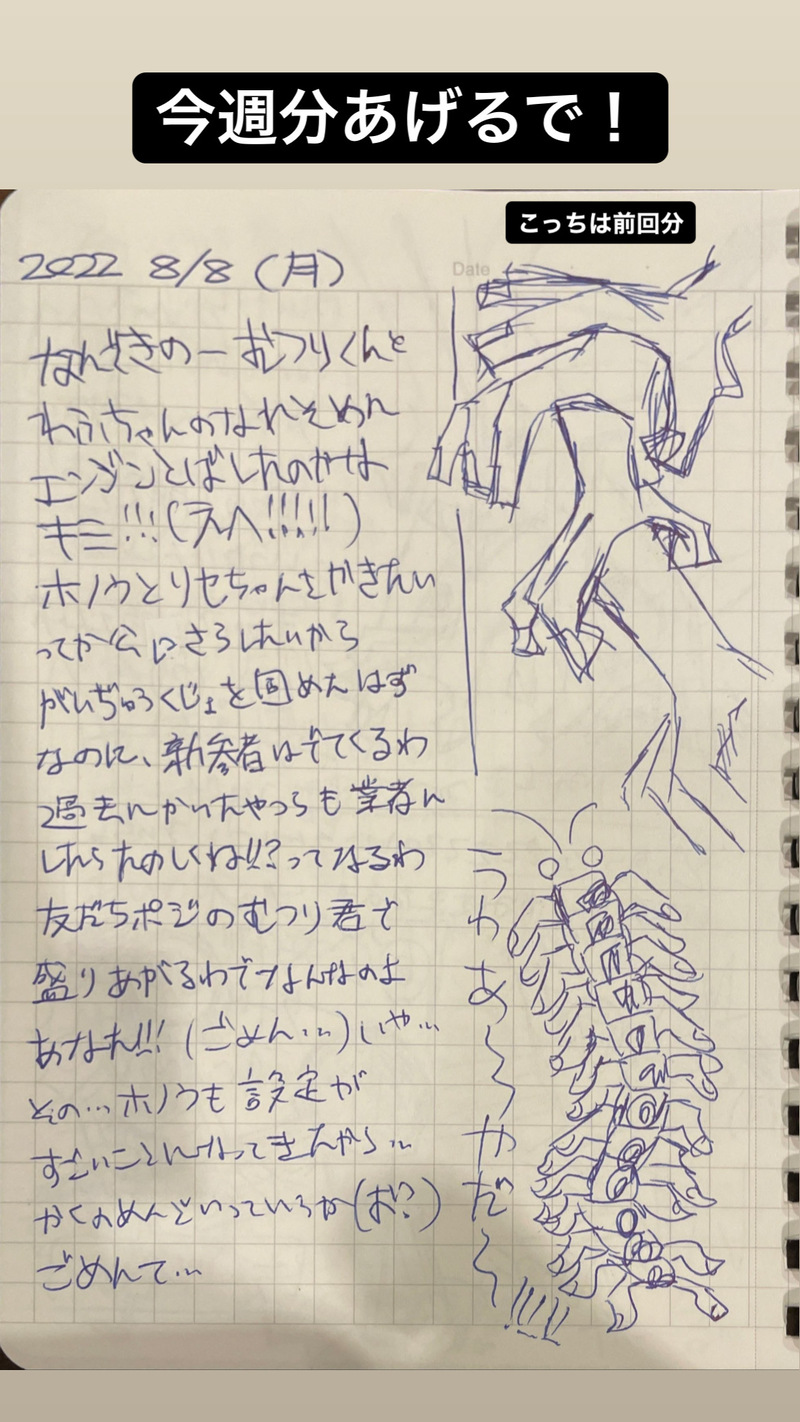 今週分あげるで！
こっちは前回分
Date
2022 8/8 (月)
なんぞきのーむつりくんと
わふちゃんのなれそめに
エンジンとばしたのかな
キミ!!!(えへ!!!!!)
ホノウとリセちゃんをかきたい
ってか公にさらしたいから
がいぢゅうくじょを固めたはず
なのに、新参者はでてくるわ
過去にかいたやつらも業者に
したらたのしくね!!?ってなるわ
友だちポジのむつり君で
盛りあがるわでなんなのよ
あなた!!!(ごめん…)いや…
その…ホノウも設定が
すごいことになってきたから…
かくのめんどいっていうか(お!?)
ごめんて…
うわあ〜〜やだ〜!!!!!